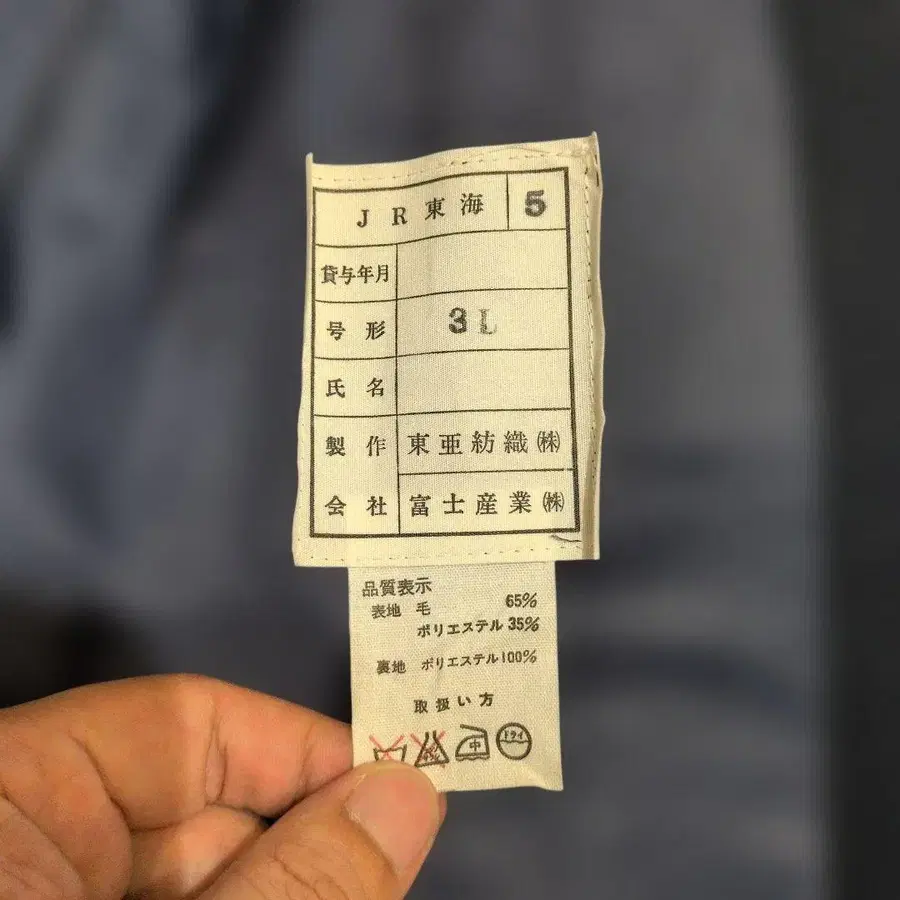 JR東海 5
貸与年月
号形 3L
氏名
製作 東亜紡織㈱
会社 富士産業㈱
品質表示
表地 毛 65%
ポリエステル 35%
裏地 ポリエステル100%
取扱い方
中 ドライ